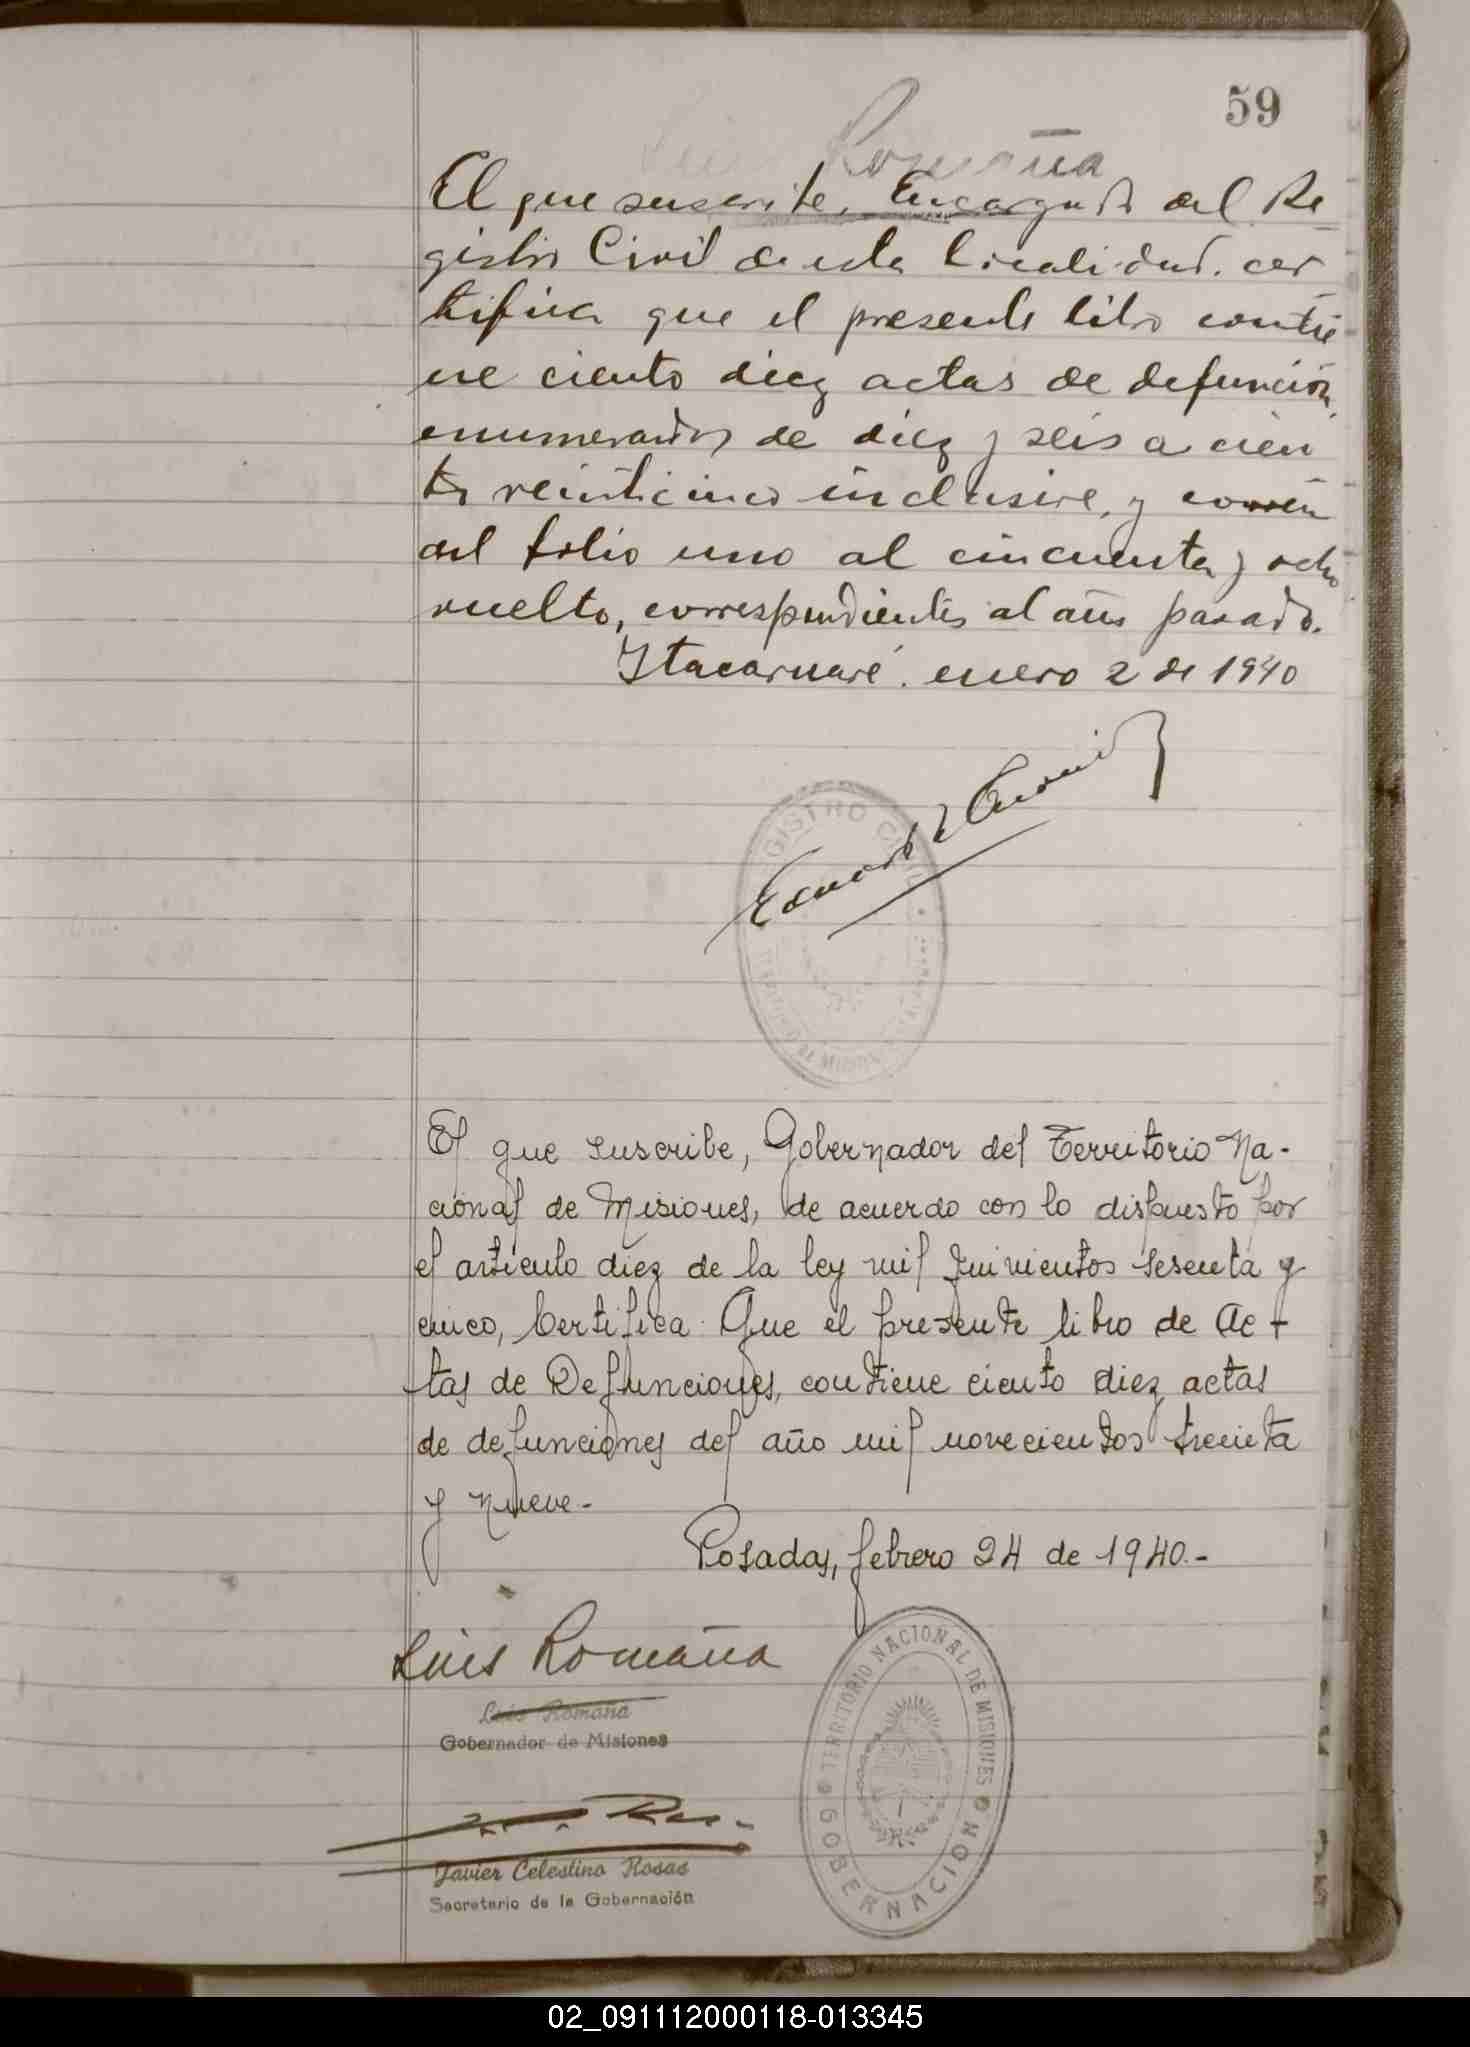 59
Romaña
El que suscribe, Encargado del Re
gistro Civil de esta localidad, cer
tifica que el presente libro contie
ne ciento diez actas de defunción
enumerados de diez y seis a cien
to veinticinco inclusive, y corren
del folio uno al cincuenta y ocho
vuelto, correspondientes al año pasado.
Itacaruaré, enero 2 de 1940
REGISTRO CIVIL
El que suscribe, Gobernador del Territorio Na-
cional de Misiones, de acuerdo con lo dispuesto por
el artículo diez de la ley mil quinientos sesenta y
cinco, Certifica: Que el presente libro de Ac-
tas de Defunciones, contiene ciento diez actas
de defunciones del año mil novecientos treinta
y nueve.-
Posadas, febrero 24 de 1940.-
Luis Romaña
Luis Romaña
Gobernador de Misiones
TERRITORIO NACIONAL DE MISIONES
GOBERNACION
Javier Celestino Rosas
Secretario de la Gobernación
02_091112000118-013345